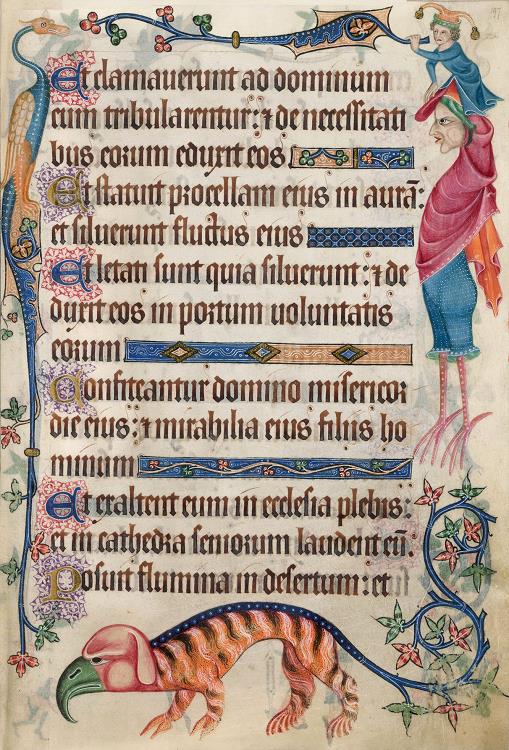 197
Et clamauerunt ad dominum
cum tribularentur: ⁊ de necessitati
bus eorum eduxit eos
Et statuit procellam eius in aurā:
et siluerunt fluctus eius
Et letati sunt quia siluerunt: ⁊ de
duxit eos in portum uoluntatis
eorum
Confiteantur domino misericor
die eius: ⁊ mirabilia eius filiis ho
minum
Et exaltent eum in ecclesia plebis:
et in cathedra seniorum laudent eū.
Posuit flumina in desertum: et